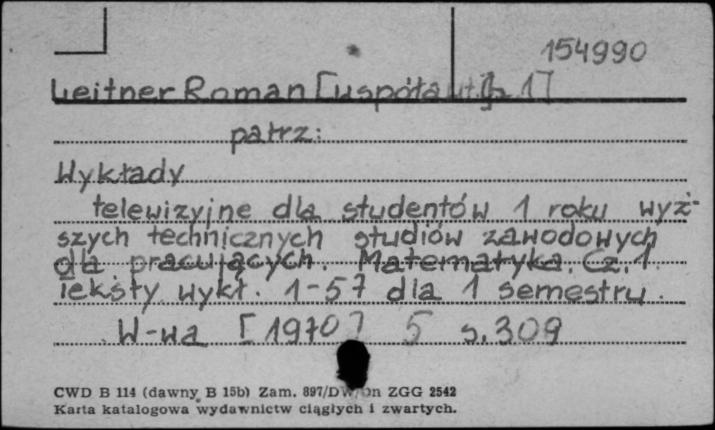 154990
Leitner Roman [współaut. 1]
patrz:
Wykłady
telewizyjne dla studentów 1 roku wyż-
szych technicznych studiów zawodowych
dla pracujących. Matematyka. Cz. 1
Teksty wykł. 1-57 dla 1 semestru.
W-wa [1970] 5 s. 309
CWD B 114 (dawny B 15b) Zam. 897/DW/Dn ZGG 2542
Karta katalogowa wydawnictw ciągłych i zwartych.